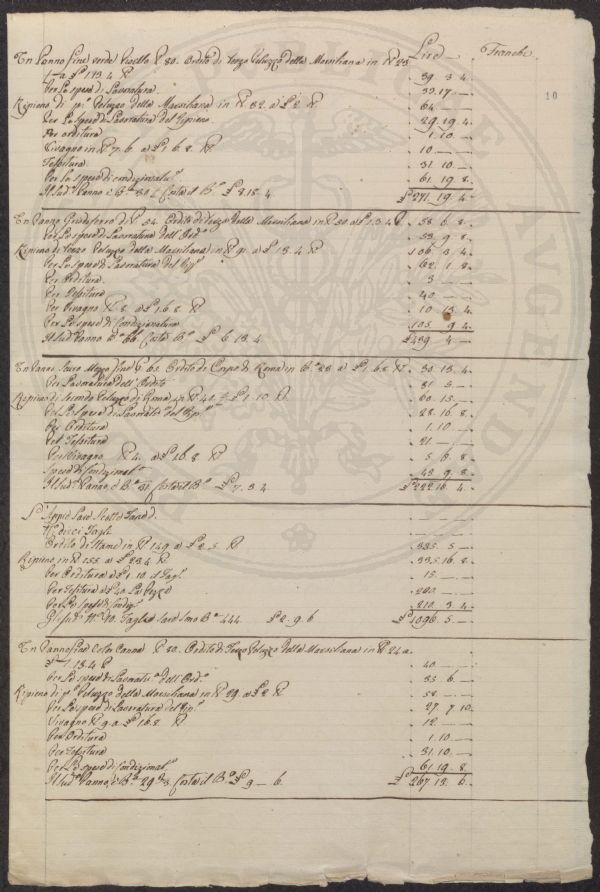 Lire Franchi
10
Un Panno fine verde P. 80. Ordito di terzo Peluzzo della Marsiliana in 23
a 1.13.4 39. 3. 4
Per Le spese di Lavoratura 33. 17
Ripieno di p.o Peluzzo della Marsiliana in 32. a 2. 64
Per Le Spese di Lavoratura del Ripieno 29. 19. 4
Per orditura 1. 10
Vivagno in 7. 6 a 1. 6. 8 10
Tessitura 31. 10
Per Le spese di condizionatu.a 61. 19. 8
Il Sud.o Panno è B.a 30 Costa il B.o 271. 19. 4
Un Panno Grisaferro di P. 54. Ordito di terzo della Marsiliana in 50 a 1. 3. 4 58. 6. 8
Per Le spese di Lavoratura dell' Ord.o 53. 9. 8
Ripieno di terzo Peluzzo della Marsiliana in 91. a 13. 4 106. 3. 4
Per Le spese di Lavoratura del Rip.o 62. 1. 8
Per Orditura 3
Per Tessitura 40
Per Vivagno 8. a 1. 6. 8 10. 13. 4
Per Le spese di Condizionatura 105. 9. 4
Il Sud.o Panno è B.a 66 Costa il B.o 6. 13. 4 439. 4
Un Panno scuro Mezzo fine 62. Ordito di Corpo di Roma in 23 a 1. 6. 8 30. 13. 4
Per Lavoratura dell' Ordito 31. 5
Ripieno di secondo Peluzzo di Roma in 40. a 1. 10 60. 15
Per Le Spese di Lavoratu.a del Rip.o 28. 16. 8
Per Orditura 1. 10
Per Tessitura 21
Per Vivagno 4. a 1. 6. 8 5. 6. 8
Spese di Condizionat.a 43. 9. 8
Il Sud.o Panno, è B.a 31 Costa il B.o 7. 3. 4 222. 16. 4
dieci Tagli
Ordito di Stame in 149. a 2. 5 335. 5
Ripieno in 155 a 2. 3. 4 335. 16. 8
Per Orditura a 1. 10 il Tagl.o 15
Per Tessitura a 20 La Pezza 200
Per Le Spese di Condiz.e 210. 3. 4
N.o 10. Tagli B.a 444 2. 9. 6 1096. 5
Un Panno fine Color Canna P. 80. Ordito di Terzo Peluzzo della Marsiliana in 24 a
1. 13. 4 40
Per Le spese di Lavorat.a dell' Ord.o 35. 6
Ripieno di p.o Peluzzo della Marsiliana in 29 a 2 58
Per Le spese di Lavoratura del Rip.o 27. 7. 10
Vivagno 9. a 1. 6. 8 12
Per Orditura 1. 10
Per Tessitura 31. 10
Per Le spese di Condizionat.a 61. 19. 8
Il Sud.o Panno, è B.a 29 Costa il B.o 9 6 267. 13. 6